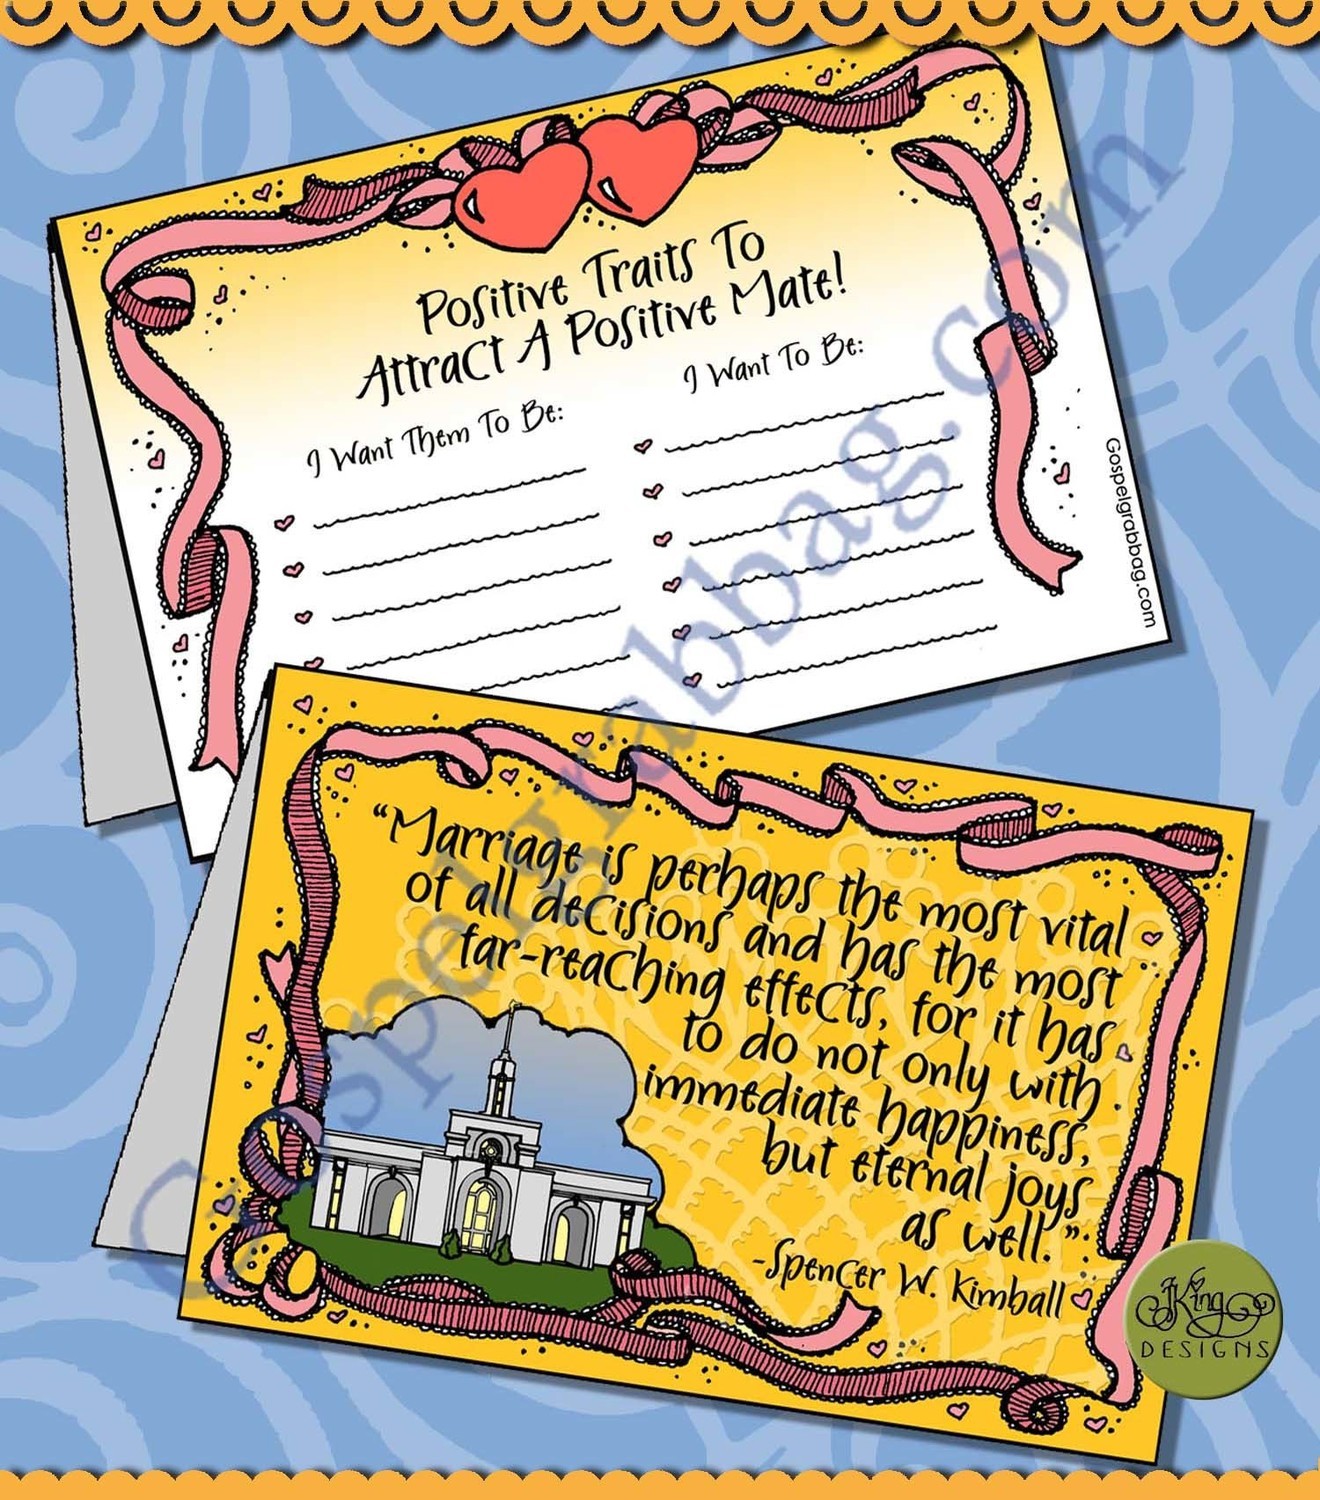 Positive Traits To
Attract A Positive Mate!
I Want Them To Be:
I Want To Be:
Gospelgrabbag.com
Gospelgrabbag.com
"Marriage is perhaps the most vital
of all decisions and has the most
far-reaching effects, for it has
to do not only with
immediate happiness,
but eternal joys
as well."
-Spencer W. Kimball
JKing
DESIGNS